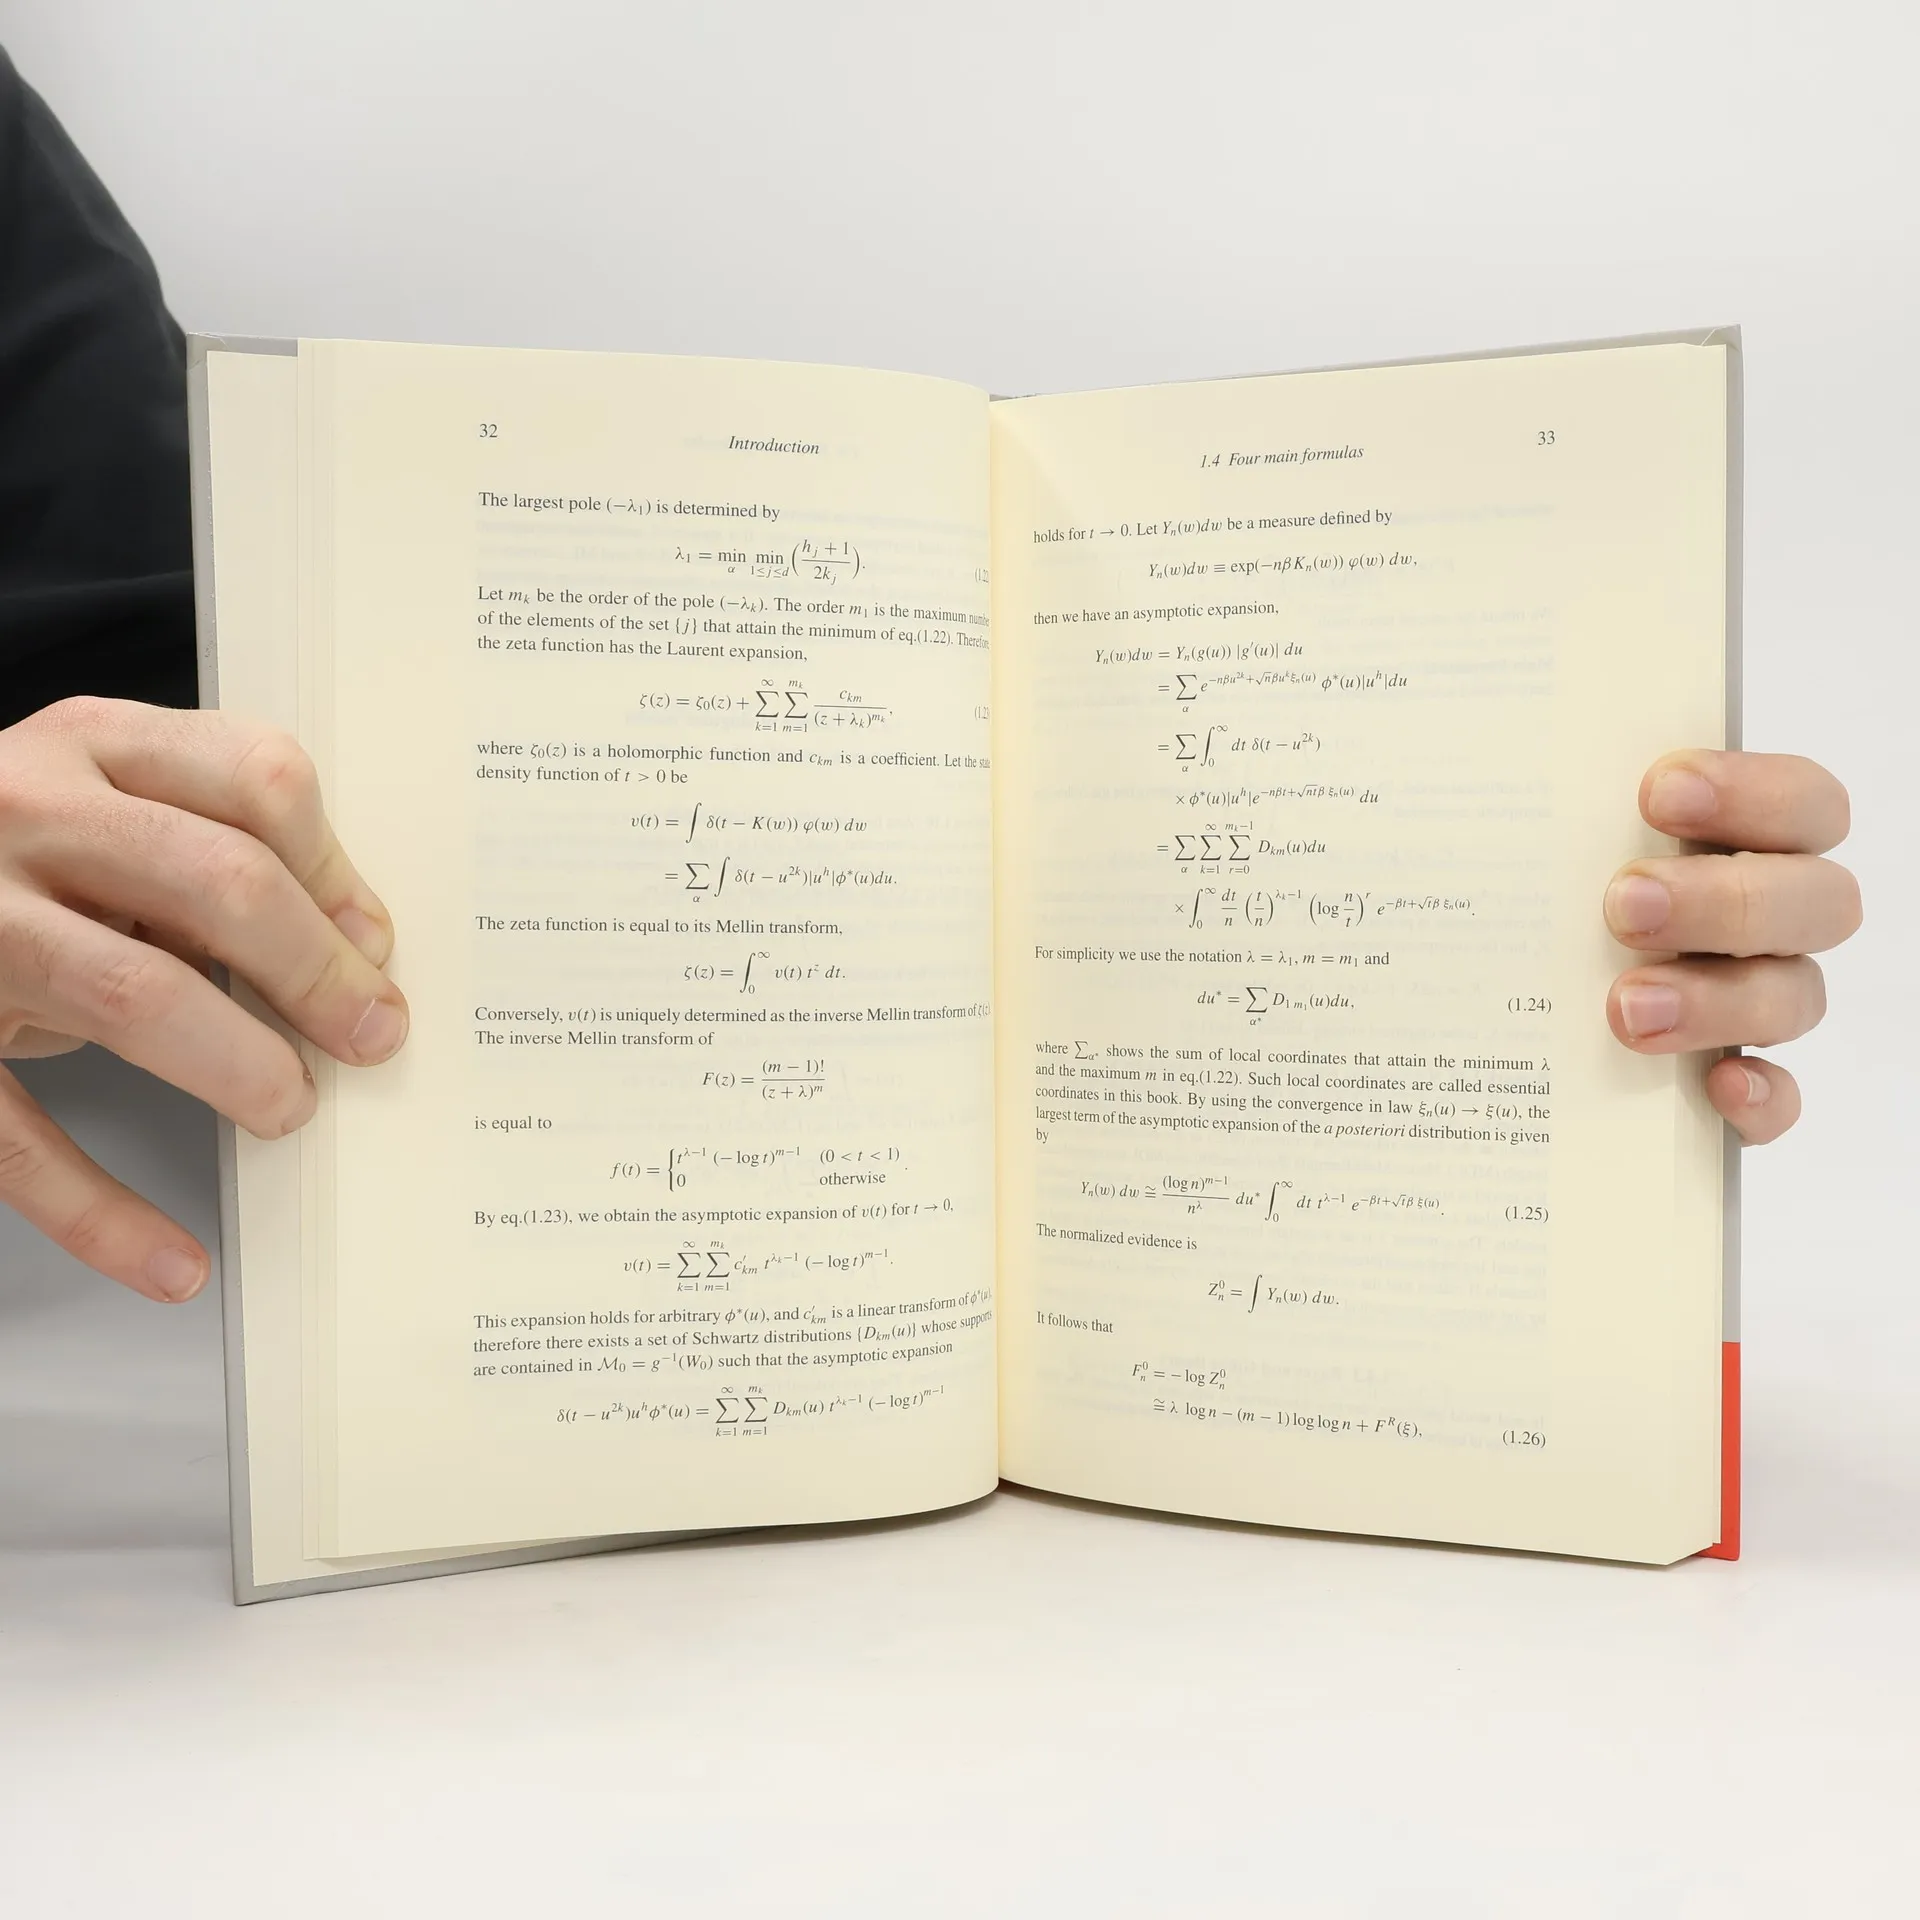 32
Introduction
The largest pole (−λ₁) is determined by
λ₁ = min_α min_{1≤j≤d} ( (h_j + 1) / 2k_j ).
Let m_k be the order of the pole (−λ_k). The order m₁ is the maximum number
of the elements of the set {j} that attain the minimum of eq.(1.22). Therefore
the zeta function has the Laurent expansion,
ζ(z) = ζ₀(z) + ∑_{k=1}^{∞} ∑_{m=1}^{m_k} c_{km} / (z + λ_k)^{m_k},
where ζ₀(z) is a holomorphic function and c_{km} is a coefficient. Let the
density function of t > 0 be
v(t) = ∫ δ(t − K(w)) φ(w) dw
= ∑_α ∫ δ(t − u^{2k})|u^h|ϕ*(u)du.
The zeta function is equal to its Mellin transform,
ζ(z) = ∫_0^∞ v(t) t^z dt.
Conversely, v(t) is uniquely determined as the inverse Mellin transform of ζ(z).
The inverse Mellin transform of
F(z) = (m − 1)! / (z + λ)^m
is equal to
f(t) = { t^{λ−1} (− log t)^{m−1} (0 < t < 1)
0 otherwise .
By eq.(1.23), we obtain the asymptotic expansion of v(t) for t → 0,
v(t) = ∑_{k=1}^{∞} ∑_{m=1}^{m_k} c′_{km} t^{λ_k−1} (− log t)^{m−1}.
This expansion holds for arbitrary ϕ*(u), and c′_{km} is a linear transform of ϕ*(u),
therefore there exists a set of Schwartz distributions {D_{km}(u)} whose supports
are contained in ℳ₀ = g^{−1}(W₀) such that the asymptotic expansion
δ(t − u^{2k})u^h ϕ*(u) = ∑_{k=1}^{∞} ∑_{m=1}^{m_k} D_{km}(u) t^{λ_k−1} (− log t)^{m−1}
1.4 Four main formulas
33
holds for t → 0. Let Y_n(w)dw be a measure defined by
Y_n(w)dw ≡ exp(−nβK_n(w)) φ(w) dw,
then we have an asymptotic expansion,
Y_n(w)dw = Y_n(g(u)) |g′(u)| du
= ∑_α e^{−nβu^{2k}+√nβu^kξ_n(u)} ϕ*(u)|u^h|du
= ∑_α ∫_0^∞ dt δ(t − u^{2k})
× ϕ*(u)|u^h|e^{−nβt+√(nt)β ξ_n(u)} du
= ∑_α ∑_{k=1}^{∞} ∑_{r=0}^{m_k−1} D_{km}(u)du
× ∫_0^∞ dt/n (t/n)^{λ_k−1} (log n/t)^r e^{−βt+√tβ ξ_n(u)}.
For simplicity we use the notation λ = λ₁, m = m₁ and
du* = ∑_{α*} D_{1 m₁}(u)du, (1.24)
where ∑_{α*} shows the sum of local coordinates that attain the minimum λ
and the maximum m in eq.(1.22). Such local coordinates are called essential
coordinates in this book. By using the convergence in law ξ_n(u) → ξ(u), the
largest term of the asymptotic expansion of the a posteriori distribution is given
by
Y_n(w) dw ≅ (log n)^{m−1} / n^λ du* ∫_0^∞ dt t^{λ−1} e^{−βt+√tβ ξ(u)}. (1.25)
The normalized evidence is
Z_n^0 = ∫ Y_n(w) dw.
It follows that
F_n^0 = − log Z_n^0
≅ λ log n − (m − 1) log log n + F^R(ξ), (1.26)